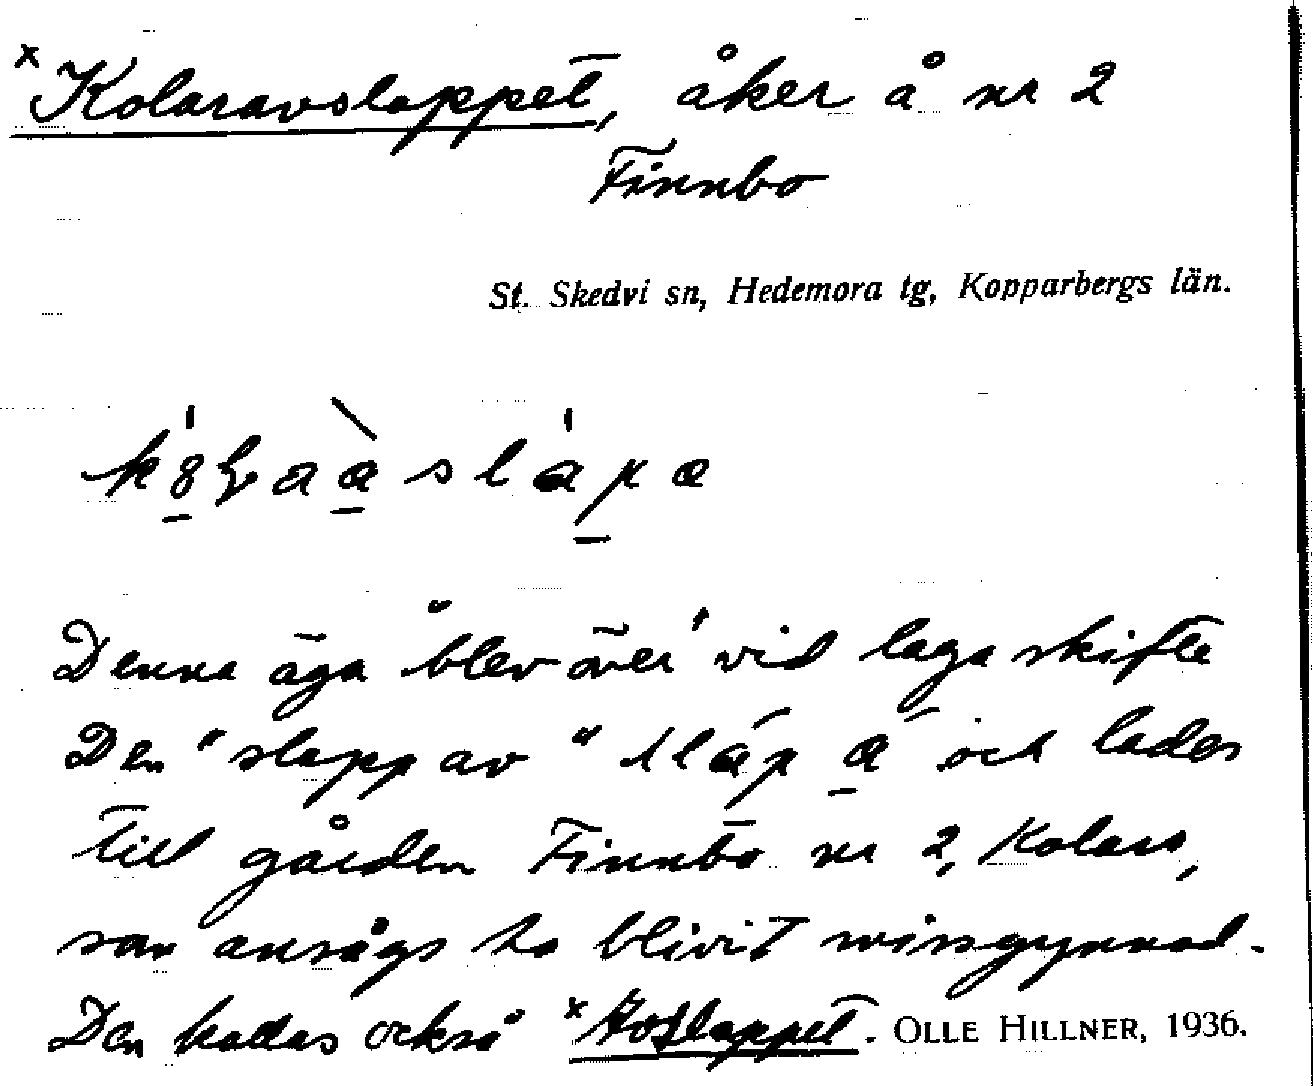 ×Kolaravslappet, åker å nr 2
Finnbo
St. Skedvi sn, Hedemora tg, Kopparbergs län.
Denna äga blev över vid laga skifte
Den "slapp av" och lades
till gården Finnbo nr 2, Kolars,
som ansågs ha blivit missgynnad.
Den kallas också ×Avslappet. OLLE HILLNER, 1936.